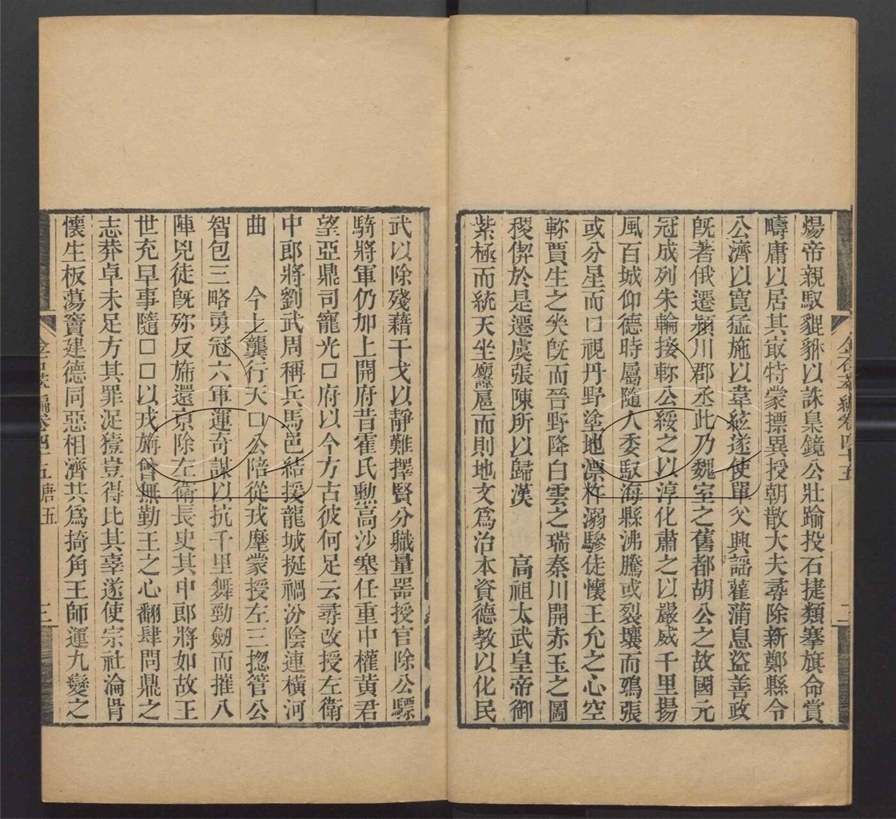 煬帝親馭貔貅以誅梟鏡公壯踰投石捷類搴旗命賞
疇庸以居其㝡特蒙摽異授朝散大夫尋除新鄭縣令
公濟以寬猛施以韋絃遂使單父興謡雚蒲息盜善政
旣著俄遷潁川郡丞此乃魏室之舊都胡公之故國元
冠成列朱輪接軫公綏之以淳化肅之以嚴威千里揚
風百城仰德時屬隨人委馭海縣沸騰或裂壤而鴉張
或分星而口視丹野塗地漂杵溺驂徒懷王允之心空
軫賈生之哭旣而晉野降白雲之瑞秦川開赤玉之圖
稷偰於是遷虞張陳所以歸漢 高祖太武皇帝御
紫極而統天坐廱扈而則地文爲治本資德教以化民
金石萃編卷四十五
二
武以除殘藉干戈以靜難擇賢分職量器授官除公驃
騎將軍仍加上開府昔霍氏勲高沙塞任重中權黄君
望亞鼎司寵光口府以今方古彼何足云尋改授左衛
中郎將劉武周稱兵馬邑結援龍城挺禍汾陰連橫河
曲 今上龔行天口公陪從戎麾蒙授左三揔管公
智包三略勇冠六軍運奇謀以抗千里舞勁劒而摧八
陣兇徒旣殄反旆還京除左衛長史其中郎將如故王
世充早事隨口口以戎旃曾無勤王之心翻肆問鼎之
志莽卓未足方其罪浞豷豈得比其辜遂使宗社淪胥
懷生板蕩竇建德同惡相濟共爲掎角王師運九變之
金石萃編卷四十五唐五
三